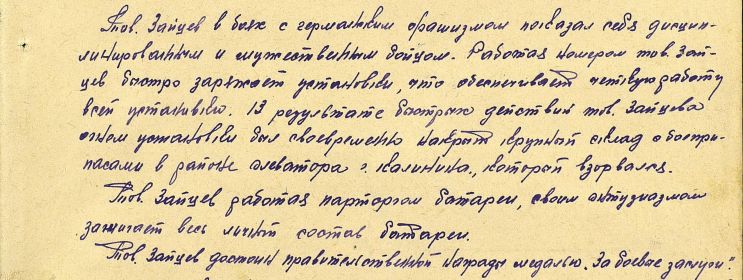 Тов. Зайцев в боях с германским фашизмом показал себя дисцип-
линированным и мужественным бойцом. Работая номером тов. Зай-
цев быстро заряжает установки, что обеспечивает четкую работу
всей установки. В результате быстрых действий тов. Зайцева
огнем установки был своевременно накрыт крупный склад с боепри-
пасами в районе элеватора г. Калинина, который взорвался.
Тов. Зайцев работая парторгом батареи, своим энтузиазмом
зажигает весь личный состав батареи.
Тов. Зайцев достоин правительственной награды медалью "За боевые заслуги".